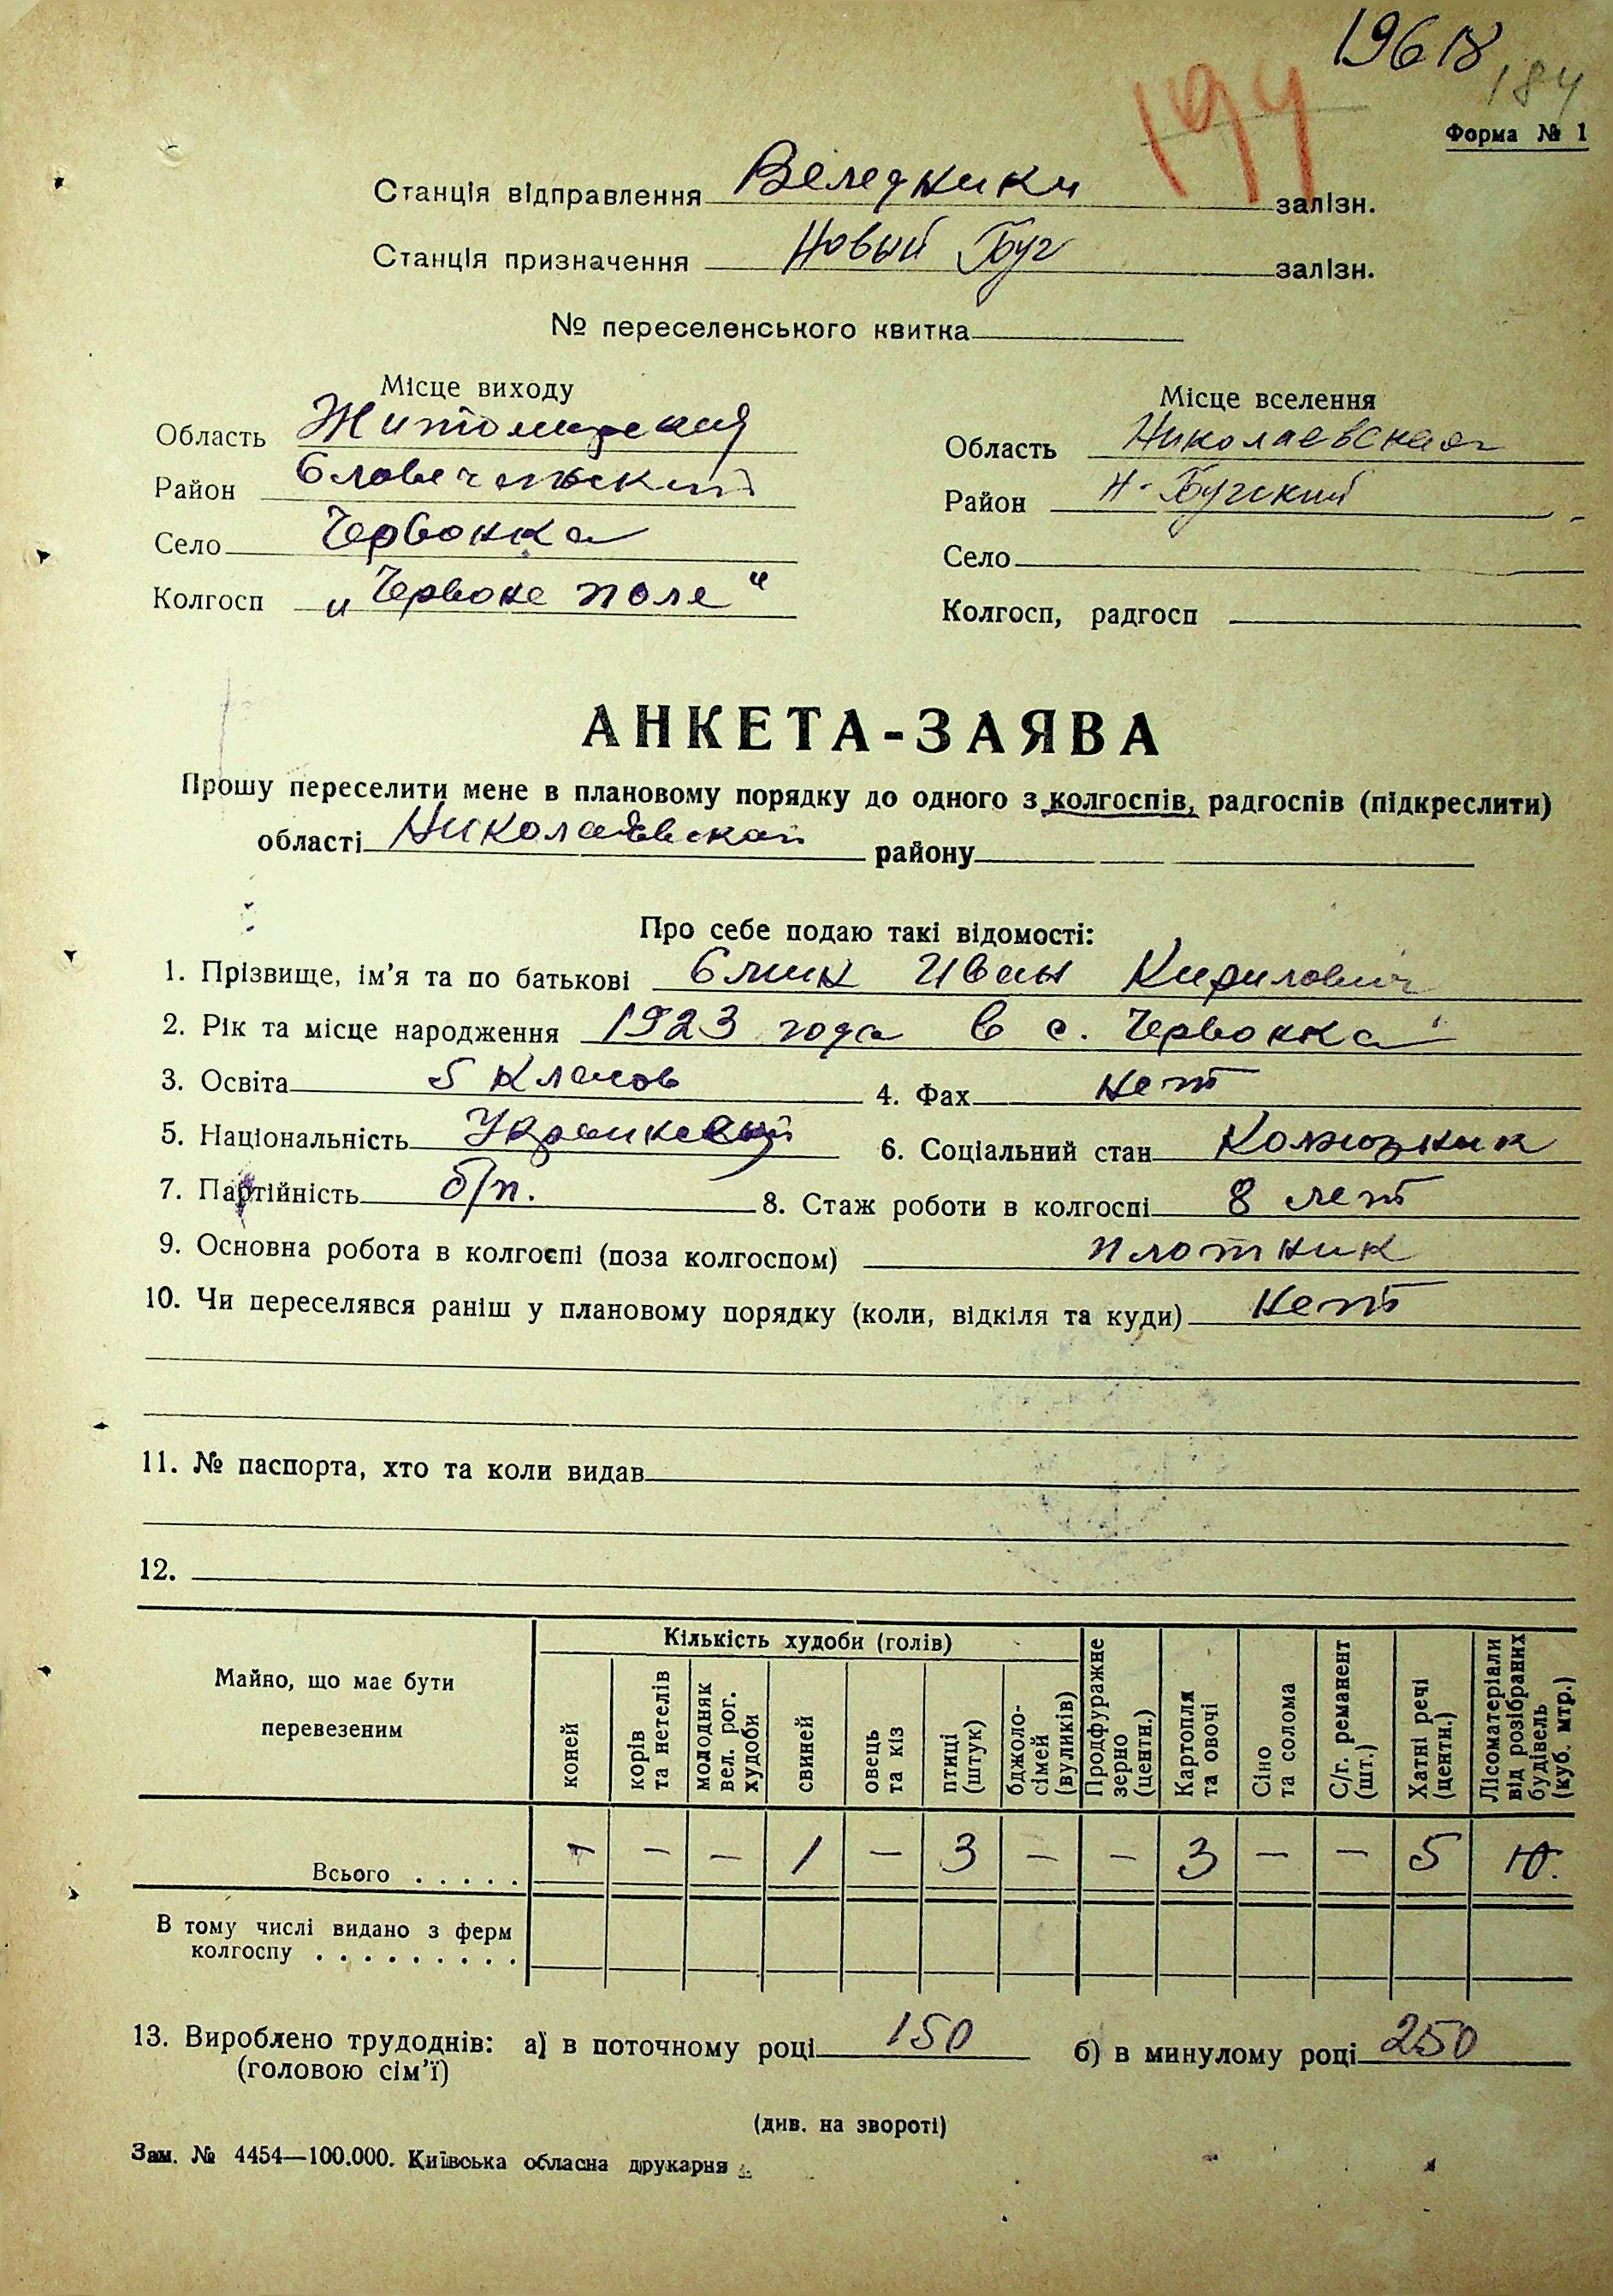 19618
184
194
Форма № 1
Станція відправлення Веледники залізн.
Станція призначення Новый Буг залізн.
№ переселенського квитка
Місце виходу
Область Житомирский
Район Словечанский
Село Червонка
Колгосп „Червоне поле“
Місце вселення
Область Николаевская
Район Н-Бугский
Село
Колгосп, радгосп
АНКЕТА-ЗАЯВА
Прошу переселити мене в плановому порядку до одного з колгоспів, радгоспів (підкреслити)
області Николаевской району
Про себе подаю такі відомості:
1. Прізвище, ім’я та по батькові Иван Кирилович
2. Рік та місце народження 1923 года в с. Червонка
3. Освіта 5 класов 4. Фах нет
5. Національність 6. Соціальний стан Колхозник
7. Партійність б/п. 8. Стаж роботи в колгоспі 8 лет
9. Основна робота в колгоспі (поза колгоспом) плотник
10. Чи переселявся раніш у плановому порядку (коли, відкіля та куди) нет
11. № паспорта, хто та коли видав
12.
Майно, що має бути перевезеним
Кількість худоби (голів)
коней
корів та нетелів
молодняк вел. рог. худоби
свиней
овець та кіз
птиці (штук)
бджоло-сімей (вуликів)
Продфуражне зерно (центн.)
Картопля та овочі
Сіно та солома
С/г. реманент (шт.)
Хатні речі (центн.)
Лісоматеріали від розібраних будівель (куб. мтр.)
Всього . . . . . – – – 1 – 3 – – 3 – – 5 10.
В тому числі видано з ферм
колгоспу . . . . . . . . .
13. Вироблено трудоднів: а) в поточному році 150 б) в минулому році 250
(головою сім’ї)
(див. на звороті)
Зам. № 4454—100.000. Київська обласна друкарня